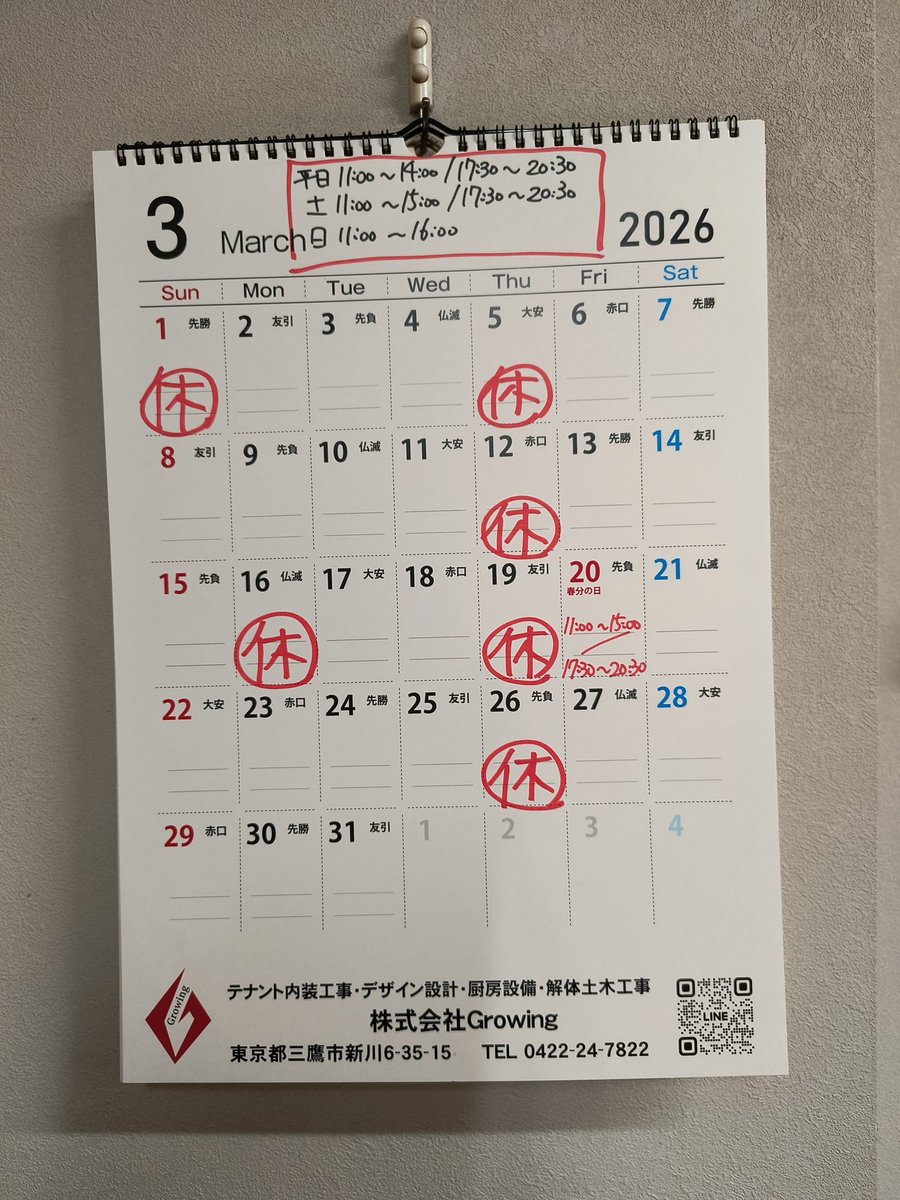 平日 11:00～14:00 / 17:30～20:30
土 11:00～15:00 / 17:30～20:30
日 11:00～16:00
3 March 2026
Sun Mon Tue Wed Thu Fri Sat
1 先勝 2 友引 3 先負 4 仏滅 5 大安 6 赤口 7 先勝
休 休
8 友引 9 先負 10 仏滅 11 大安 12 赤口 13 先勝 14 友引
休
15 先負 16 仏滅 17 大安 18 赤口 19 友引 20 先負 21 仏滅
春分の日
休 休 11:00～15:00 / 17:30～20:30
22 大安 23 赤口 24 先勝 25 友引 26 先負 27 仏滅 28 大安
休
29 赤口 30 先勝 31 友引 1 2 3 4
Growing
テナント内装工事・デザイン設計・厨房設備・解体土木工事
株式会社Growing
東京都三鷹市新川6-35-15 TEL 0422-24-7822
LINE